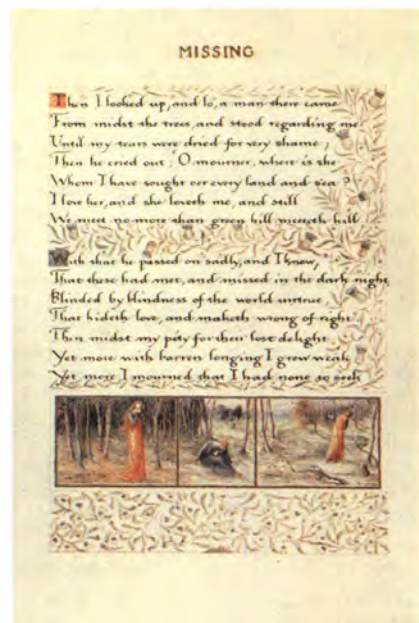 MISSING
Then I looked up, and lo, a man there came
From midst the trees, and stood regarding me
Until my tears were dried for very shame;
Then he cried out: O mourner, where is she
Whom I have sought o'er every land and sea?
I love her, and she loveth me, and still
We meet no more than green hill meeteth hill
With that he passed on sadly, and I knew,
That these had met, and missed in the dark night,
Blinded by blindness of the world untrue
That hideth love, and maketh wrong of right.
Then midst my pity for their lost delight
Yet more with barren longing I grew weak
Yet more I mourned that I had none to seek